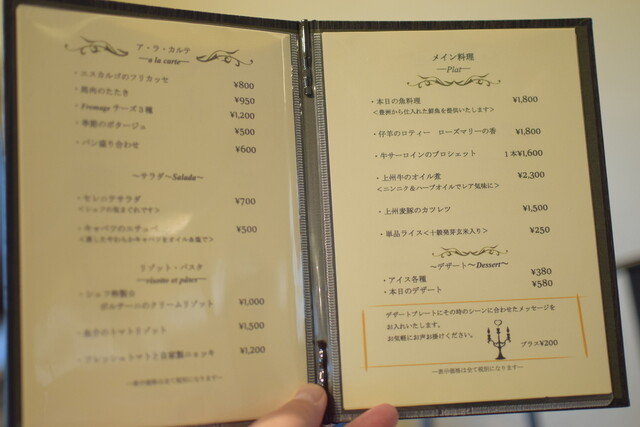 ア・ラ・カルテ
—a la carte—
・エスカルゴのフリカッセ ¥800
・馬肉のたたき ¥950
・Fromage チーズ3種 ¥1,200
・季節のポタージュ ¥500
・パン盛り合わせ ¥600
～サラダ～Salada～
・セレニテサラダ ¥700
＜シェフの気まぐれです＞
・キャベツのエチュベ ¥500
＜蒸したやわらかキャベツをオイル＆塩で＞
リゾット・パスタ
—risotto et pâtes—
・シェフ特製☆
ポルチーニのクリームリゾット ¥1,000
のトマトリゾット ¥1,500
・フレッシュトマトと自家製ニョッキ ¥1,200
—表示価格は全て税別になります—
メイン料理
—Plat—
・本日の魚料理 ¥1,800
＜豊洲から仕入れた鮮魚を提供いたします＞
・仔羊のロティー ローズマリーの香 ¥1,800
・牛サーロインのブロシェット 1本¥1,600
・上州牛のオイル煮 ¥2,300
＜ニンニク＆ハーブオイルでレア気味に＞
・上州麦豚のカツレツ ¥1,500
・単品ライス＜十穀発芽玄米入り＞ ¥250
～デザート～Dessert～
・アイス各種 ¥380
・本日のデザート ¥580
デザートプレートにその時のシーンに合わせたメッセージを
お入れいたします。
お気軽にお声お掛けください。
プラス¥200
—表示価格は全て税別になります—